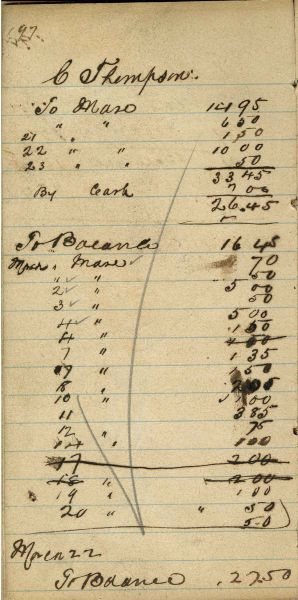 97
C Thompson
To Mare 14 95
" " 6 50
21 " 1 50
22 " " 10 00
23 " " 50
33 45
By Cash 7 00
26.45
To Balance 16 45
Mrch " Mare 70
" " 50
2 " 5 00
3 " 50
4 " 5 00
4 " 1 50
7 " 1 35
9 " 1 50
8 "
10 " 1 00
11 3 85
12 " 75
14 " 1 00
17 2 00
18 " 2 00
19 " 1 00
20 " " 50
50
March 22
To Balance . 27.50